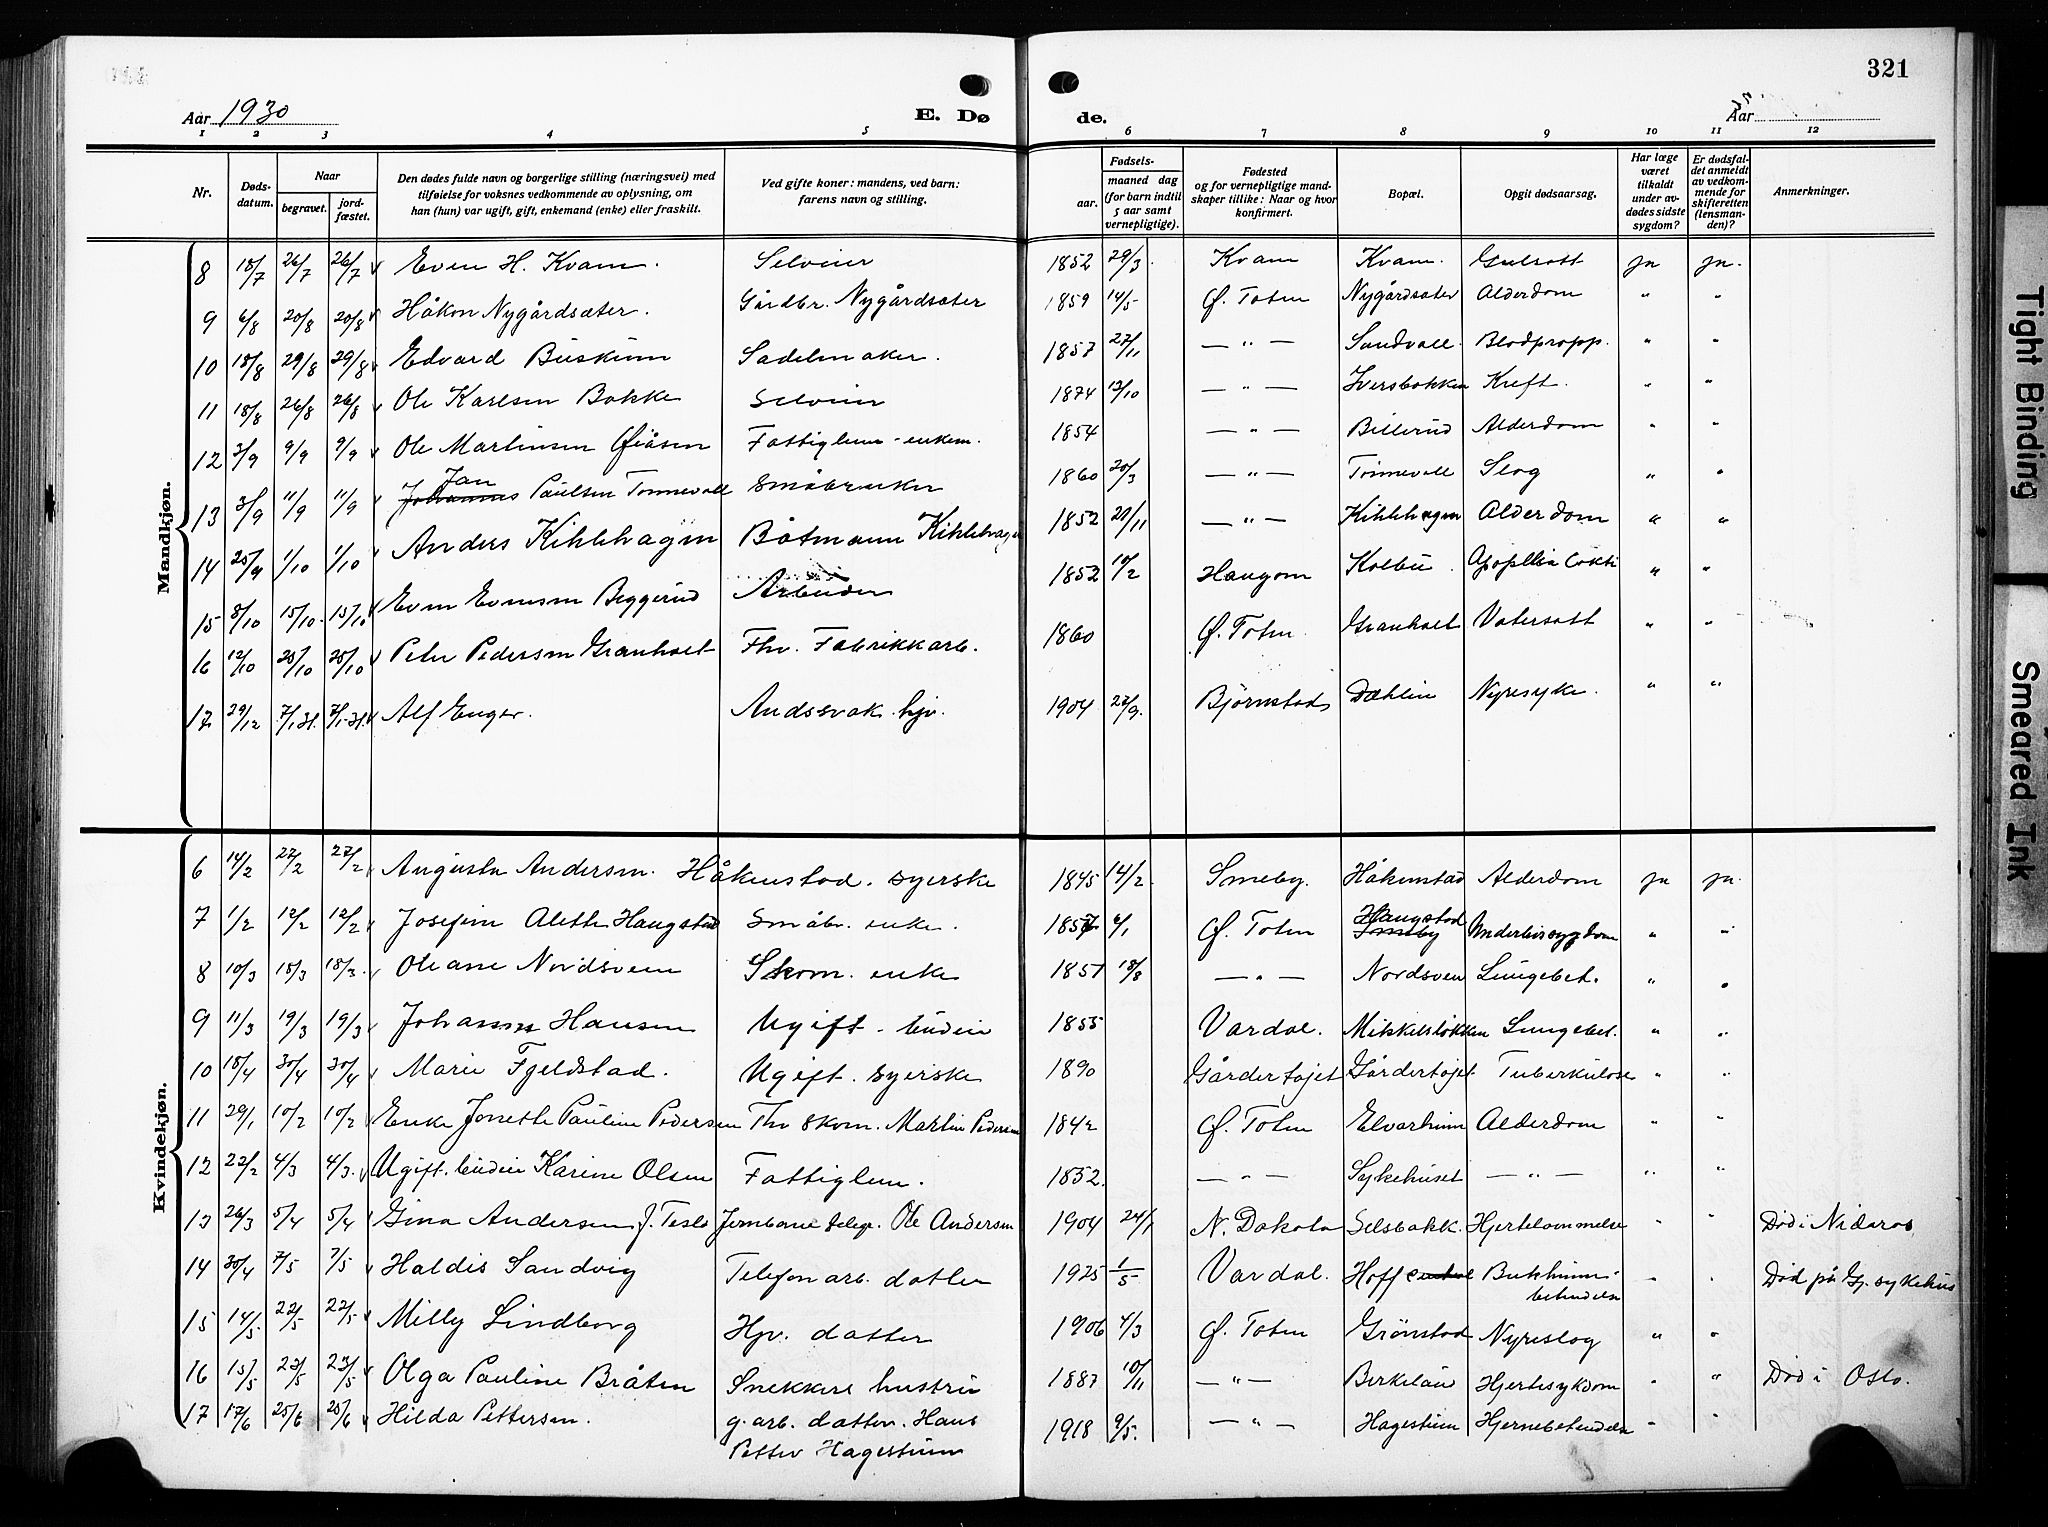 321
Aar 1930
E. Døde.
Aar
1 2 3 4 5 6 7 8 9 10 11 12
Nr.
Døds-datum.
Naar
begravet.
jord-fæstet.
Den dødes fulde navn og borgerlige stilling (næringsvei) med tilføielse for voksnes vedkommende av oplysning, om han (hun) var ugift, gift, enkemand (enke) eller fraskilt.
Ved gifte koner: mandens, ved barn: farens navn og stilling.
Fødsels-
aar.
maaned dag (for barn indtil 5 aar samt vernepligtige).
Fødested og for vernepligtige mand-skaper tillike: Naar og hvor konfirmert.
Bopæl.
Opgit dødsaarsag.
Har læge været tilkaldt under av-dødes sidste sygdom?
Er dødsfal-det anmeldt av vedkom-mende for skifteretten (lensman-den)?
Anmerkninger.
Mandkjøn.
8 18/7 26/7 26/7 Even H. Kvam. Selveier 1852 29/3 Kvam Kvam. Gulsott ja ja.
9 6/8 20/8 20/8 Håkon Nygårdsæter. Gårdbr. Nygårdsæter 1859 14/5 Ø. Toten Nygårdsæter Alderdom " "
10 18/8 29/8 29/8 Edvard Buskum Sadelmaker. 1857 27/11 — " — Sandvoll. Blodpropp. " "
11 18/8 26/8 26/8 Ole Karlsen Bakke Selveier 1874 13/10 — " — Iversbakken Kreft. " "
12 3/9 9/9 9/9 Ole Martinsen Øiåsen Fattiglem - enkem. 1854 — " — Billerud Alderdom " "
13 3/9 11/9 11/9 Johannes Jan Paulsen Tømmevold Småbruker 1860 20/3 — " — Tømmevold Slag " "
14 25/9 1/10 1/10 Anders Kihlehagen Båtmann Kihlehagen 1852 21/11 — " — Kihlehagen Alderdom " "
15 8/10 15/10 15/10 Even Evensen Beggerud Arbeider 1852 10/2 Haugom Kolbu. " "
16 12/10 25/10 25/10 Peter Pedersen Granholt Fhv. Fabrikkarb. 1860 Ø. Toten. Granholt Vatersott " "
17 29/12 7/1.31. 7/1-31 Alf Enger. Andssvak. hjv. 1904 27/9. Bjørnstad Dæhlin Nyresyke. " "
Kvindekjøn.
6 14/2 27/2 27/2 Augusta Andersen. Håkenstad. syerske 1845 14/2. Smeby. Håkenstad Alderdom ja ja.
7 1/2 12/2 12/2 Josefine Alette Haugstad Småbr. enke. 1857 6/1 Ø. Toten Smeby Haugstad Underlivssygdom " "
8 10/3 18/3 18/3. Oleane Nordsveen Skom. enke 1851 18/8 — " — Nordsveen Lungebet. " "
9 11/3 19/3 19/3 Johannes Hansen Ugift. budeie 1855 Vardal. Mikkelsløkken Lungebet. " "
10 18/4 30/4 30/4 Marie Fjeldstad. Ugift. syerske 1890 Gårdertajet Gårdertajet Tuberkulose " "
11 29/1 10/2 10/2 Enke Jonette Pauline Pedersen Fhv skom. Martin Pedersen 1842 Ø. Toten Elvarheim Alderdom " "
12 22/2 4/3 4/3. Ugift. budeie Karine Olsen Fattiglem. 1852. — " — Sykehuset — " — " "
13 26/3 5/4 5/4 Gina Andersen f. Teslo Jernbane Ole Andersen 1904 24/1 N. Dakota Selsbakk. Hjertelammelse " " Død i Nidaros
14 30/4 7/5 7/5 Haldis Sandvig Telefonarb. datter 1925 1/5 Vardal. Hoff Bukhinne-betendelse " " Død på Gj. sykehus
15 14/5. 22/5 22/5 Milly Lindborg Hjv. datter 1906 4/3 Ø. Toten Grønstad Nyreslag " "
16 15/5 23/5 23/5 Olga Pauline Bråten Snekkers hustru 1887 10/11 — " — Birkelau Hjertesykdom " " Død i Oslo.
17 17/6 25/6 25/6 Hilda Pettersen. g. arb. datter. Hans
Petter Hagestuen 1918 9/5. — " — Hagestuen Hjernebetendelse " "
Tight Binding
Smeared Ink